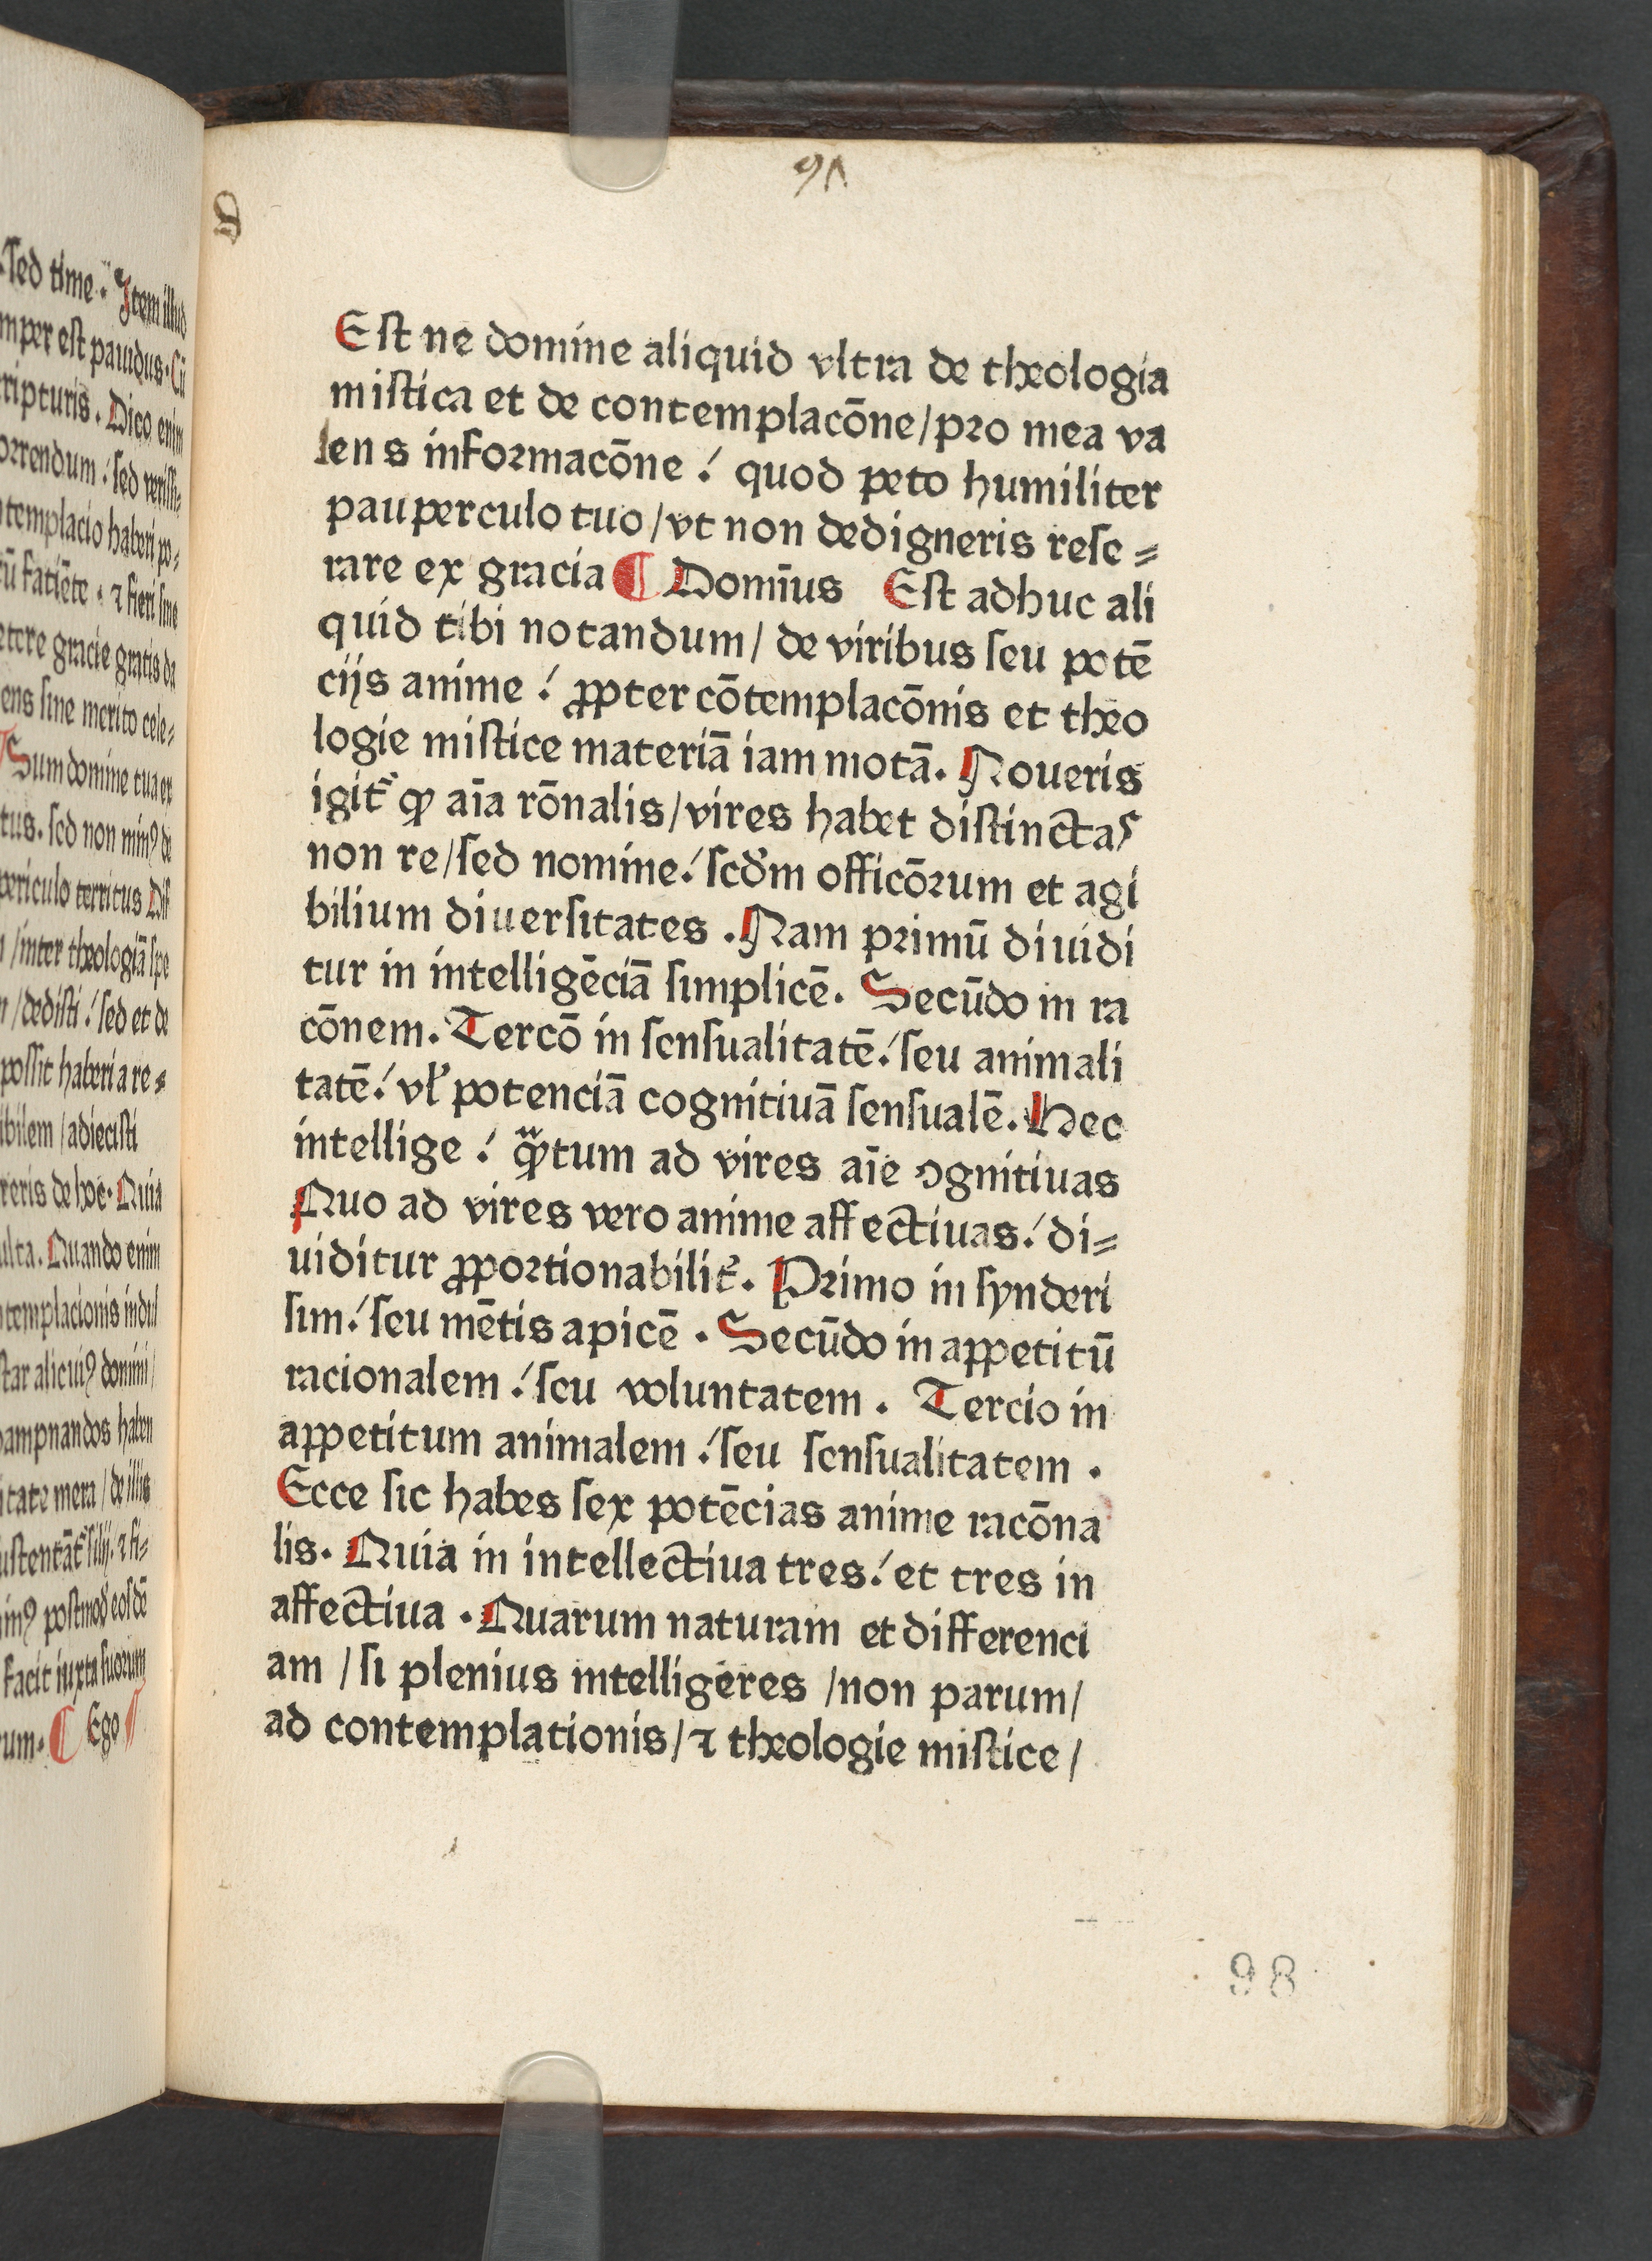 9Λ
Est ne domine aliquid vltra de theologia
mistica et de contemplacōne/pro mea va
lens informacōne/ quod peto humiliter
pauperculo tuo/vt non dedigneris rese⸗
rare ex gracia ¶ Domīus Est adhuc ali
quid tibi notandum/ de viribus seu potē
cijs anime/ ꝓpter cōtemplacōnis et theo
logie mistice materiā iam motā. Noueris
igit᷑ ꝙ aīa rōnalis/vires habet distinctas
non re/sed nomine/ scd̓m officōrum et agi
bilium diuersitates. Nam primū diuidi
tur in intelligēciā simplicē. Secūdo in ra
cōnem. Tercō in sensualitatē/ seu animali
tatē/ vl̓ potenciā cognitiuā sensualē. Hec
intellige/ qͣ̈ꝫtum ad vires aīe ꝯgnitiuas
Quo ad vires vero anime affectiuas/ di⸗
uiditur ꝓportionabilit᷑. Primo in synderi
sim/ seu mētis apicē. Secūdo in appetitū
racionalem/ seu voluntatem. Tercio in
appetitum animalem/ seu sensualitatem.
Ecce sic habes sex potēcias anime racōna
lis. Quia in intellectiua tres/ et tres in
affectiua. Quarum naturam et differenci
am /si plenius intelligeres /non parum/
ad contemplationis/⁊ theologie mistice/
98
sed time. Item illud
est pauidus. Cū
Dico enim
sed
templacio haberi po⸗
⁊ fieri sine
gracie gratis da
sine merito cele⸗
Sum domine tua ex
sed non minꝰ de
periculo territus Dis
/inter theologiā spe
/dedisti/ sed et de
possit haberi a re⸗
/adiecisti
de hoc. Quia
Quando enim
alicuiꝰ domini/
mera/de illis
⁊ fi⸗
postmod̓ eosdē
facit iuxta suorum
¶ Ego